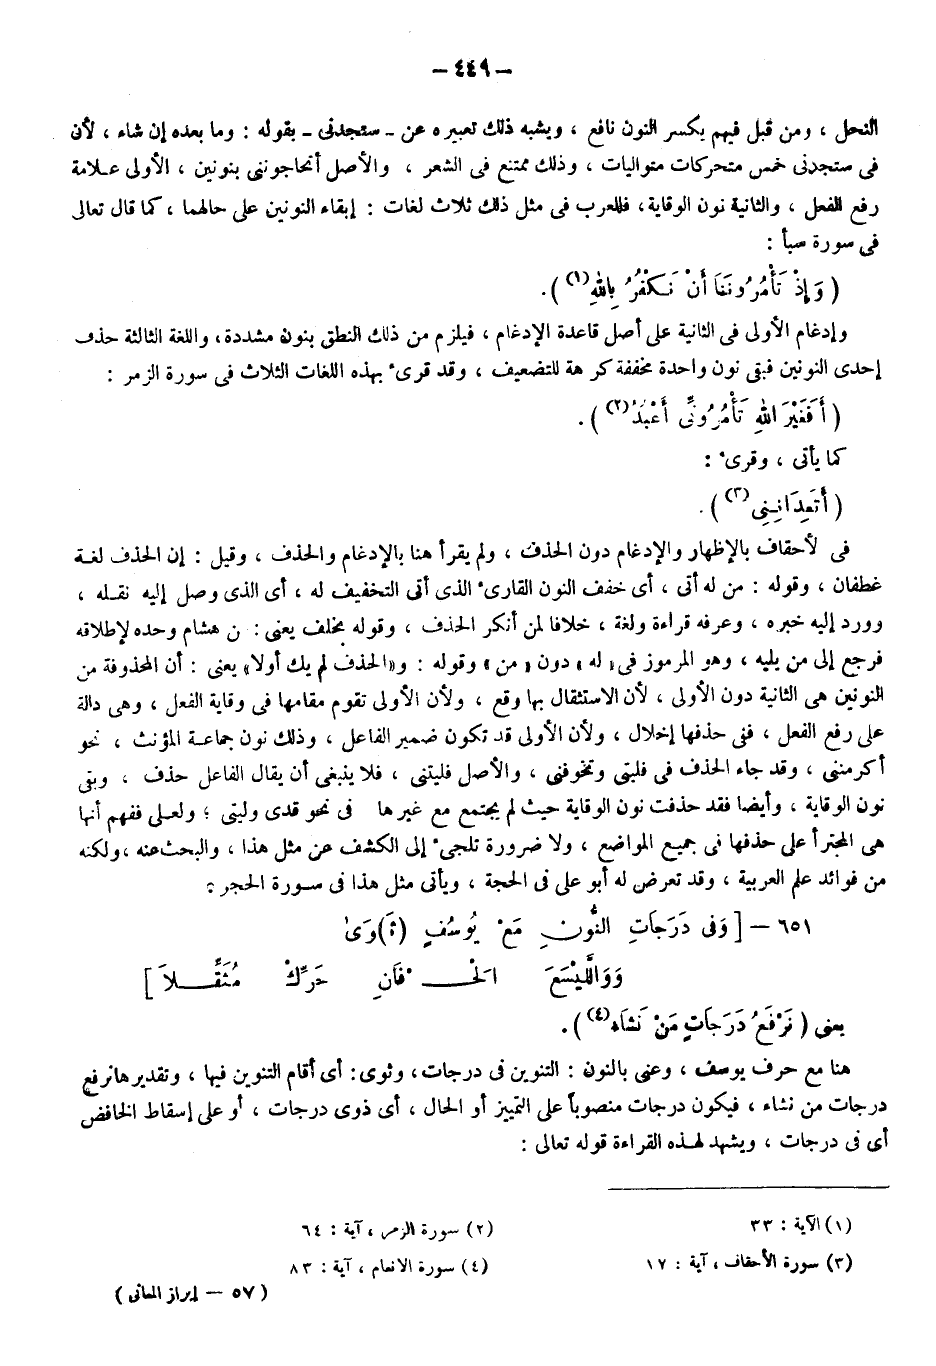 — ٤٤٩ —
النحل ، ومن قبل فيهم يكسر النون نافع ، ويشبه ذلك تعبيره عن ـ ستجدنى ـ بقوله : وما بعده إن شاء ، لأن
فى ستجدنى خمس متحركات متواليات ، وذلك ممتنع فى الشعر ، والأصل أتحاجوننى بنونين ، الأولى علامة
رفع الفعل ، والثانية نون الوقاية، فللعرب فى مثل ذلك ثلاث لغات : إبقاء النونين على حالهما ، كما قال تعالى
فى سورة سبأ :
( وَإِذْ تَأْمُرُونَنَا أَنْ نَكْفُرُ بِاللهِ(١) ) .
وإدغام الأولى فى الثانية على أصل قاعدة الإدغام ، فيلزم من ذلك النطق بنون مشددة، واللغة الثالثة حذف
إحدى النونين فبقى نون واحدة مخففة كر هة للتضعيف ، وقد قرىء بهذه اللغات الثلاث فى سورة الزمر :
( أَفَغَيْرَ اللهِ تَأْمُرُونِّى أَعْبُدُ(٢) ) .
كما يأتى ، وقرىء :
( أَتَعِدَانِنِى(٣) ) .
فى لأحقاف بالإظهار والإدغام دون الحذف ، ولم يقرأ هنا بالإدغام والحذف ، وقيل : إن الحذف لغة
غطفان ، وقوله : من له أتى ، أى خفف النون القارىء الذى أتى التخفيف له ، أى الذى وصل إليه نقله ،
وورد إليه خبره ، وعرفه قراءة ولغة ، خلافا لمن أنكر الحذف ، وقوله بخلف يعنى : ن هشام وحده لإطلاقه
فرجع إلى من يليه ، وهو المرموز فى« له » دون « من » وقوله : و«الحذف لم يك أولا» يعنى : أن المحذوفة من
النونين هى الثانية دون الأولى ، لأن الاستثقال بها وقع ، ولأن الأولى تقوم مقامها فى وقاية الفعل ، وهى دالة
على رفع الفعل ، ففى حذفها إخلال ، ولأن الأولى قد تكون ضمير الفاعل ، وذلك نون جماعة المؤنث ، نحو
أكرمننى ، وقد جاء الحذف فى فلينى وتخوفنى ، والأصل فليننى ، فلا ينبغى أن يقال الفاعل حذف ، وبقى
نون الوقاية ، وأيضا فقد حذفت نون الوقاية حيث لم يجتمع مع غيرها فى نحو قدى وليتى ؛ ولعلى ففهم أنها
هى المجترأ على حذفها فى جميع المواضع ، ولا ضرورة تلجىء إلى الكشف عن مثل هذا ، والبحث عنه ،ولكنه
من فوائد علم العربية ، وقد تعرض له أبو على فى الحجة ، ويأتى مثل هذا فى سورة الحجر :
٦٥١ — [ وَفى دَرَجَاتِ النُّونِ مَعْ يُوسُفٍ (ثَ)وَى
وَوَاللَّيْسَعَ الحَـــرْفَانِ حَرِّكْ مُثَقَّـــلاَ ]
يعنى ( نَرْفَعُ دَرَجَاتٍ مَنْ نَشَاء(٤) ) .
هنا مع حرف يوسف ، وعنى بالنون : التنوين فى درجات، وثوى: أى أقام التنوين فيها ، وتقديرها نرفع
درجات من نشاء ، فيكون درجات منصوباً على التمييز أو الحال ، أى ذوى درجات ، أو على إسقاط الخافض
أى فى درجات ، ويشهد لهذه القراءة قوله تعالى :
(١) الآية : ٣٣ (٢) سورة الزمر ، آية : ٦٤
(٣) سورة الأحقاف ، آية : ١٧ (٤) سورة الانعام ، آية : ٨٣
( ٥٧ — إبراز المعانى )